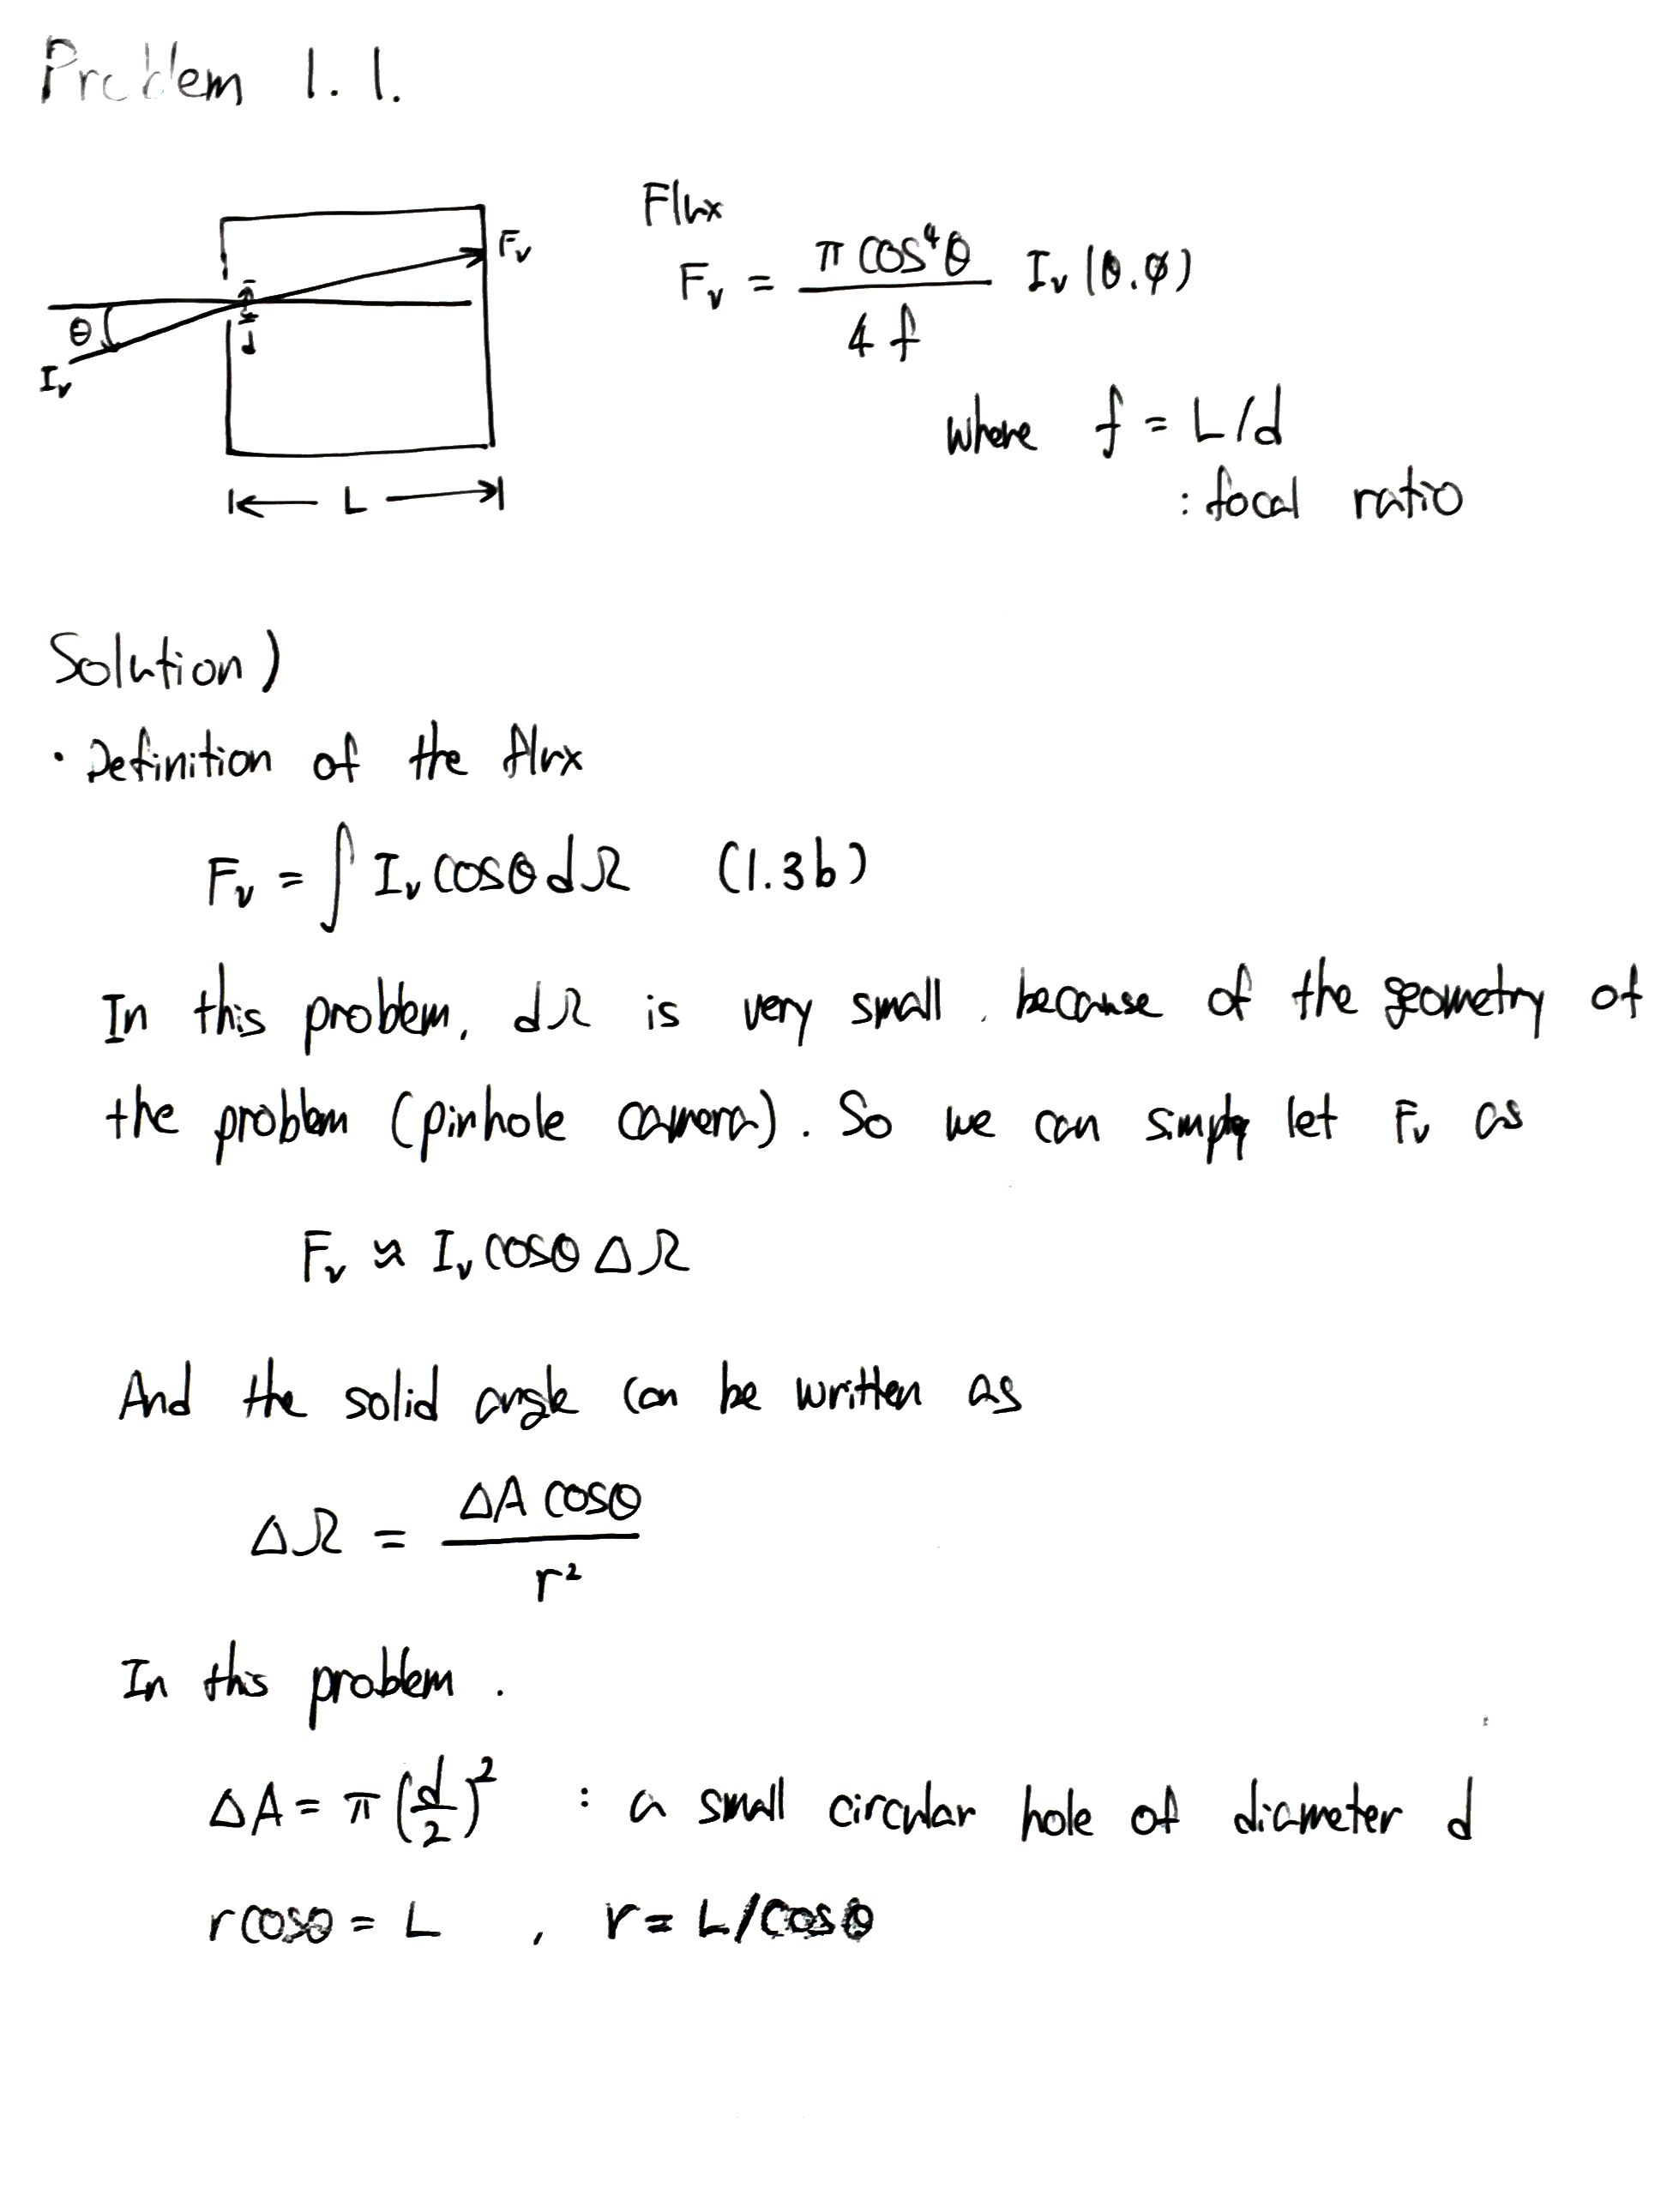 Problem 1.1.
Flux
F_ν = π cos⁴θ / 4f I_ν (θ.φ)
where f = L/d
: focal ratio
F_ν
θ
d
I_ν
L
Solution)
· Definition of the flux
F_ν = ∫ I_ν cosθ dΩ (1.3b)
In this problem, dΩ is very small, because of the geometry of
the problem (pinhole camera). So we can simply let F_ν as
F_ν ≈ I_ν cosθ ΔΩ
And the solid angle can be written as
ΔΩ = ΔA cosθ / r²
In this problem.
ΔA = π (d/2)² : a small circular hole of diameter d
r cosθ = L , r = L/cosθ